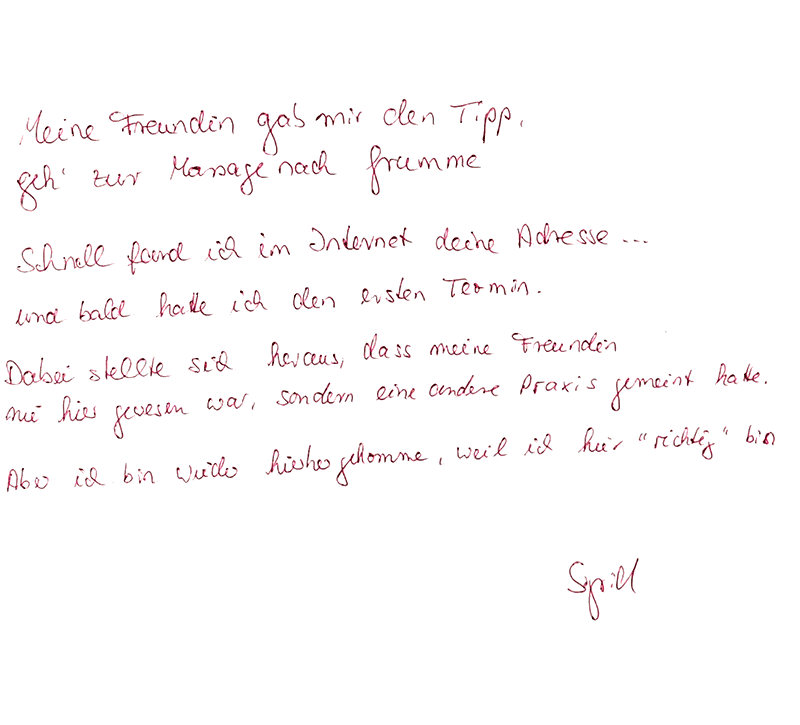 Meine Freundin gab mir den Tipp,
geh' zur Massage nach Grumme
Schnell fand ich im Internet deine Adresse ...
und bald hatte ich den ersten Termin.
Dabei stellte sich heraus, dass meine Freundin
nie hier gewesen war, sondern eine andere Praxis gemeint hatte.
Aber ich bin wieder hierher gekommen, weil ich hier "richtig" bin